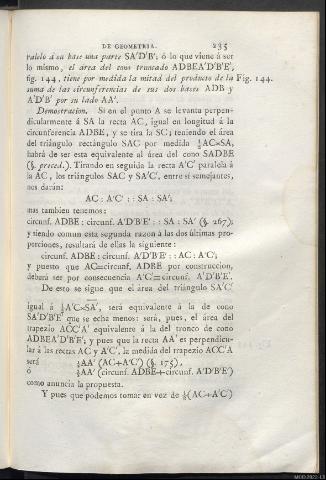 DE GEOMETRIA. 235
ralelo á su base una parte SA'D'B'; ó lo que viene á ser
lo mismo, el área del cono truncado ADBEA'D'B'E',
fig. 144, tiene por medida la mitad del producto de la Fig. 144.
suma de las circunferencias de sus dos bases ADB y
A'D'B' por su lado AA'.
Demostracion. Si en el punto A se levanta perpen-
dicularmente á SA la recta AC, igual en longitud á la
circunferencia ADBE, y se tira la SC; teniendo el área
del triángulo rectángulo SAC por medida ½AC×SA,
habrá de ser esta equivalente al área del cono SADBE
(§. preced.). Tirando en seguida la recta A'C' paralela á
la AC, los triángulos SAC y SA'C', entre sí semejantes,
nos darán:
AC : A'C' : : SA : SA';
mas tambien tenemos:
circunf. ADBE : circunf. A'D'B'E' : : SA : SA' (§. 267);
y siendo comun esta segunda razon á las dos últimas pro-
porciones, resultará de ellas la siguiente :
circunf. ADBE : circunf. A'D'B'E' : : AC : A'C';
y puesto que AC=circunf. ADBE por construccion,
deberá ser por consecuencia A'C'=circunf. A'D'B'E'.
De esto se sigue que el área del triángulo SA'C'
igual á ½A'C'×SA', será equivalente á la de cono
SA'D'B'E' que se echa menos: será, pues, el área del
trapezio ACC'A' equivalente á la del tronco de cono
ADBEA'D'B'E'; y pues que la recta AA' es perpendicu-
lar á las rectas AC y A'C', la medida del trapezio ACC'A'
será ½AA' (AC+A'C') (§. 175),
ó ½AA' (circunf. ADBE+circunf. A'D'B'E')
como anuncia la propuesta.
Y pues que podemos tomar en vez de ½(AC+A'C')